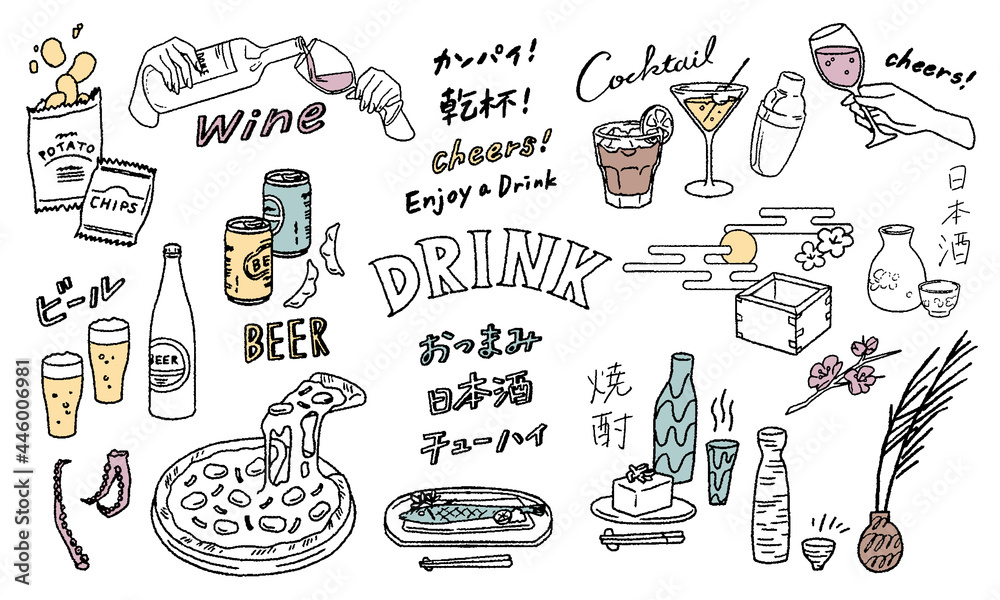 POTATO
CHIPS
DONE
Wine
カンパイ!
乾杯!
cheers!
Enjoy a Drink
Cocktail
cheers!
日本酒
ビール
BE
BEER
BEER
DRINK
おつまみ
日本酒
チューハイ
焼酎
Adobe Stock | #446006981